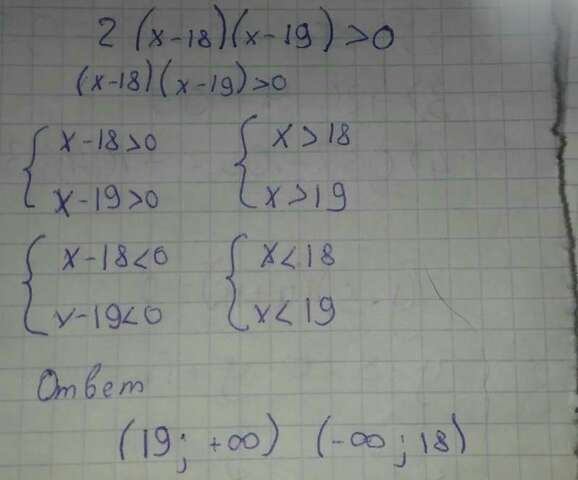 2 (x-18)(x-19)>0
(x-18)(x-19)>0
{ x-18>0 { x>18
x-19>0 x>19
{ x-18<0 { x<18
x-19<0 x<19
Ответ
(19; +∞) (-∞; 18)